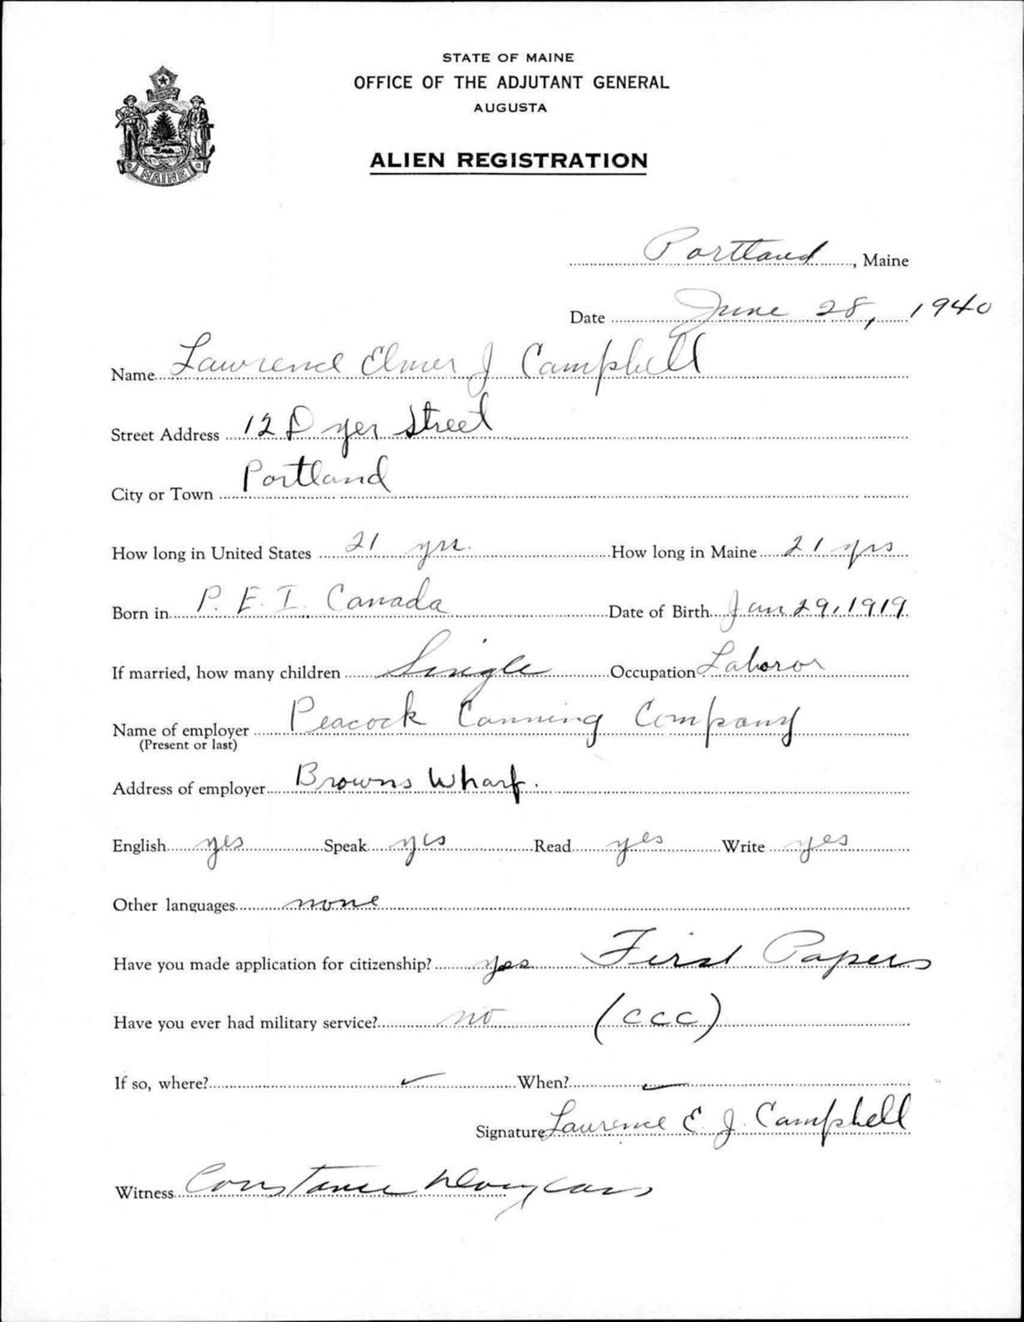 STATE OF MAINE
OFFICE OF THE ADJUTANT GENERAL
AUGUSTA
ALIEN REGISTRATION
MAINE
Portland, Maine
Date June 28, 1940
Name Lawrence Elmer J Campbell
Street Address 12 Dyer Street
City or Town Portland
How long in United States 21 yrs. How long in Maine 21 yrs
Born in P. E. I. Canada Date of Birth Jan 29, 1919
If married, how many children Single Occupation Laboror
Name of employer Peacock Canning Company
(Present or last)
Address of employer Browns Wharf.
English yes Speak yes Read yes Write yes
Other languages none
Have you made application for citizenship? yes First Papers
Have you ever had military service? no (CCC)
If so, where? ✓ When? ✓
Signature Lawrence E. J. Campbell
Witness Constance Douglass